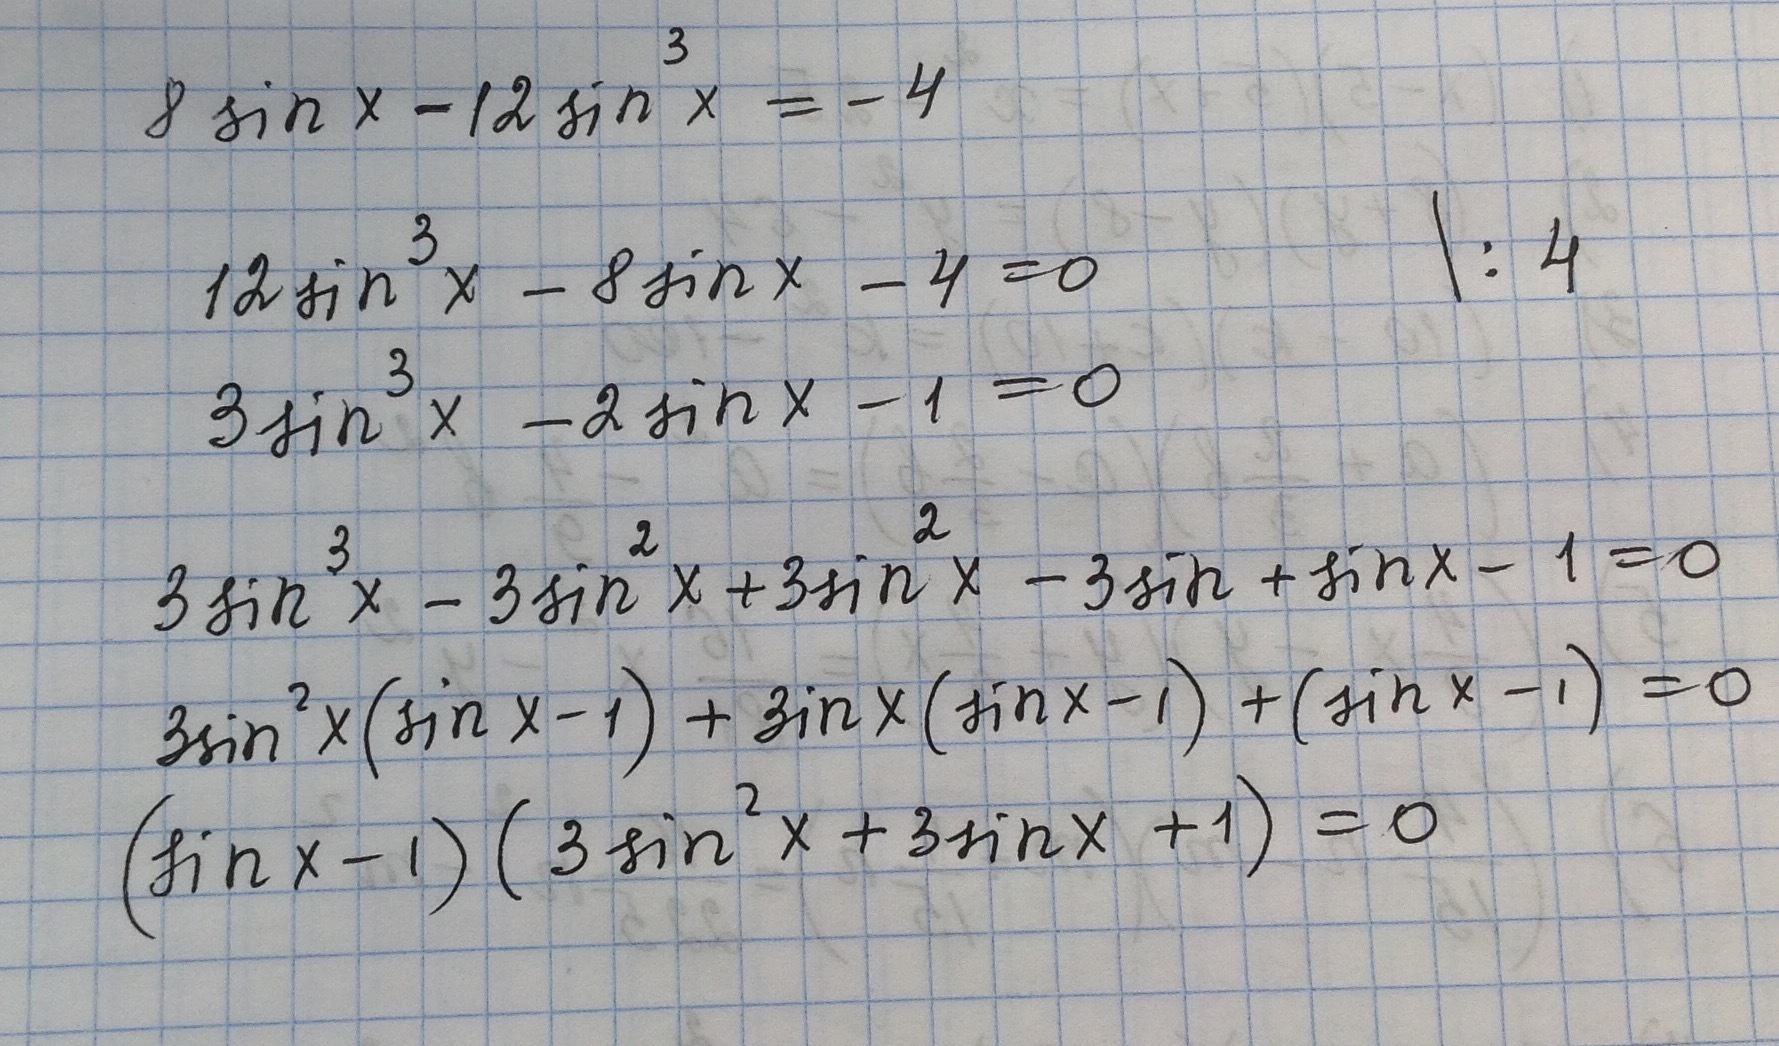 8 sin x - 12 sin³ x = - 4
12 sin³ x - 8 sin x - 4 = 0 | : 4
3 sin³ x - 2 sin x - 1 = 0
3 sin³ x - 3 sin² x + 3 sin² x - 3 sin + sin x - 1 = 0
3 sin² x (sin x - 1) + 3in x (sin x - 1) + (sin x - 1) = 0
(sin x - 1) (3 sin² x + 3 sin x + 1) = 0